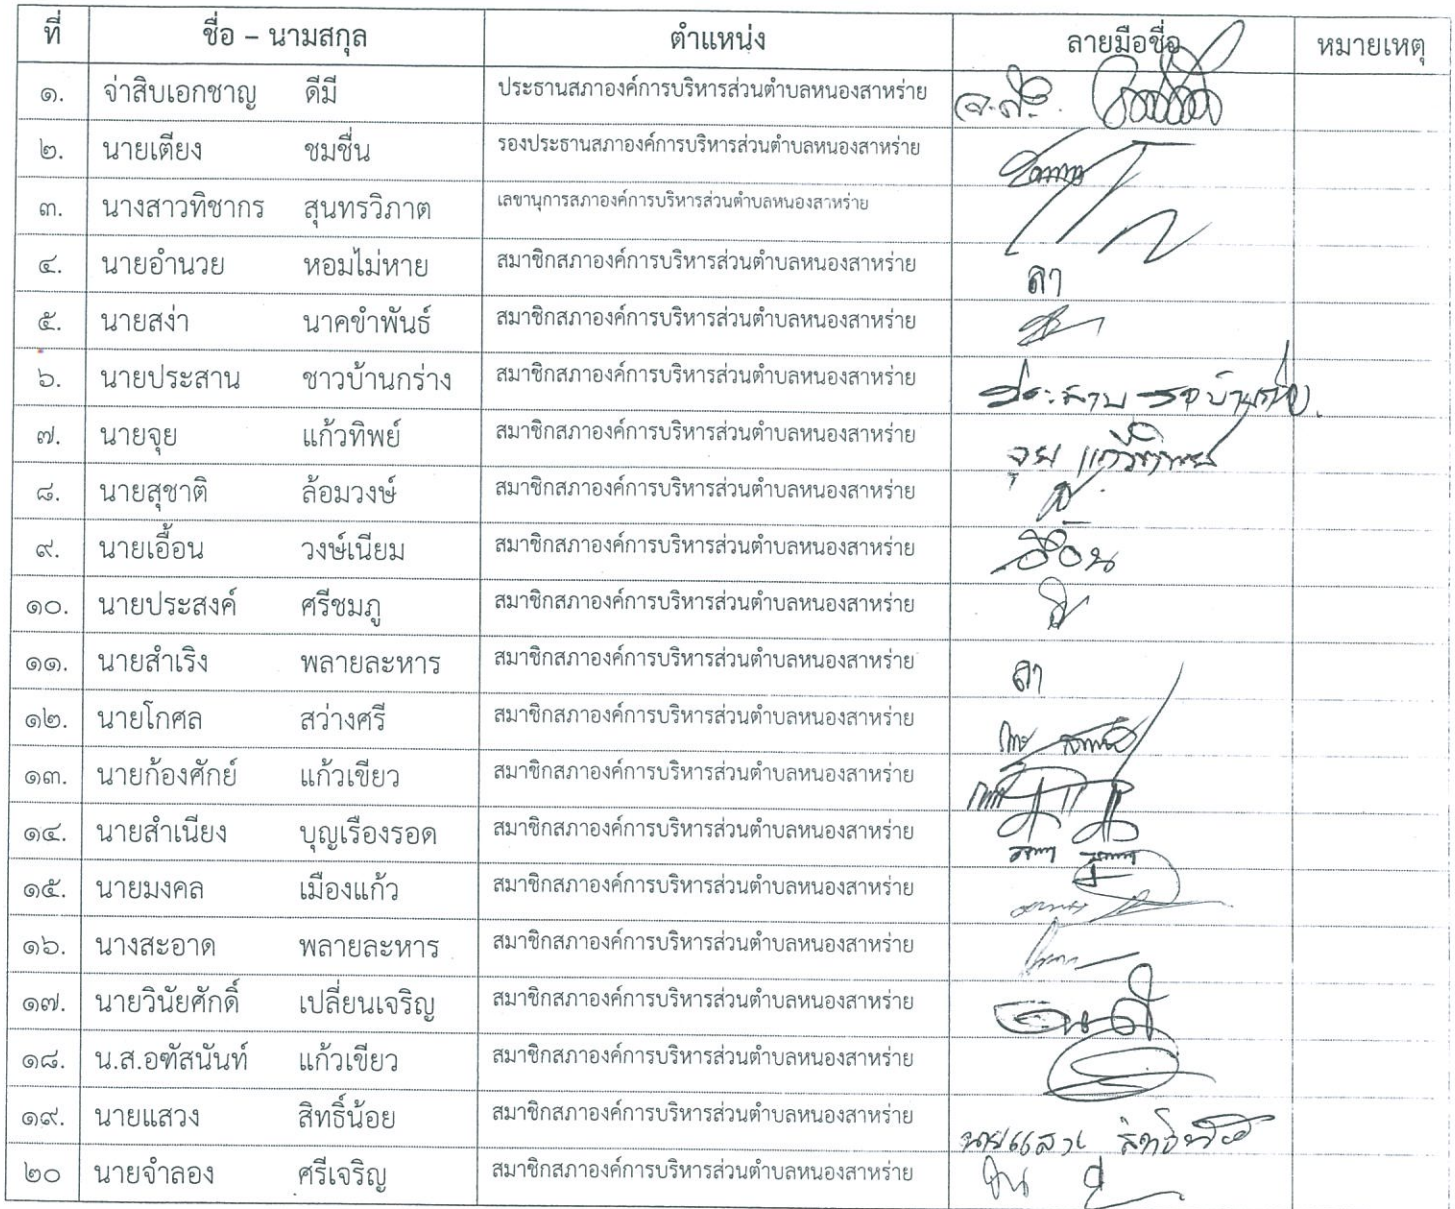 ที่ ชื่อ – นามสกุล ตำแหน่ง ลายมือชื่อ หมายเหตุ
๑. จ่าสิบเอกชาญ ดีมี ประธานสภาองค์การบริหารส่วนตำบลหนองสาหร่าย จ.ส.อ.
๒. นายเตียง ชมชื่น รองประธานสภาองค์การบริหารส่วนตำบลหนองสาหร่าย
๓. นางสาวทิชากร สุนทรวิภาต เลขานุการสภาองค์การบริหารส่วนตำบลหนองสาหร่าย
๔. นายอำนวย หอมไม่หาย สมาชิกสภาองค์การบริหารส่วนตำบลหนองสาหร่าย ลา
๕. นายสง่า นาคขำพันธ์ สมาชิกสภาองค์การบริหารส่วนตำบลหนองสาหร่าย
๖. นายประสาน ชาวบ้านกร่าง สมาชิกสภาองค์การบริหารส่วนตำบลหนองสาหร่าย ประสาน ชาวบ้านกร่าง
๗. นายจุย แก้วทิพย์ สมาชิกสภาองค์การบริหารส่วนตำบลหนองสาหร่าย จุย แก้วทิพย์
๘. นายสุชาติ ล้อมวงษ์ สมาชิกสภาองค์การบริหารส่วนตำบลหนองสาหร่าย
๙. นายเอื้อน วงษ์เนียม สมาชิกสภาองค์การบริหารส่วนตำบลหนองสาหร่าย เอื้อน
๑๐. นายประสงค์ ศรีชมภู สมาชิกสภาองค์การบริหารส่วนตำบลหนองสาหร่าย
๑๑. นายสำเริง พลายละหาร สมาชิกสภาองค์การบริหารส่วนตำบลหนองสาหร่าย ลา
๑๒. นายโกศล สว่างศรี สมาชิกสภาองค์การบริหารส่วนตำบลหนองสาหร่าย
๑๓. นายก้องศักย์ แก้วเขียว สมาชิกสภาองค์การบริหารส่วนตำบลหนองสาหร่าย
๑๔. นายสำเนียง บุญเรืองรอด สมาชิกสภาองค์การบริหารส่วนตำบลหนองสาหร่าย
๑๕. นายมงคล เมืองแก้ว สมาชิกสภาองค์การบริหารส่วนตำบลหนองสาหร่าย
๑๖. นางสะอาด พลายละหาร สมาชิกสภาองค์การบริหารส่วนตำบลหนองสาหร่าย
๑๗. นายวินัยศักดิ์ เปลี่ยนเจริญ สมาชิกสภาองค์การบริหารส่วนตำบลหนองสาหร่าย
๑๘. น.ส.อฑัสนันท์ แก้วเขียว สมาชิกสภาองค์การบริหารส่วนตำบลหนองสาหร่าย
๑๙. นายแสวง สิทธิ์น้อย สมาชิกสภาองค์การบริหารส่วนตำบลหนองสาหร่าย นายแสวง สิทธิ์น้อย
๒๐ นายจำลอง ศรีเจริญ สมาชิกสภาองค์การบริหารส่วนตำบลหนองสาหร่าย